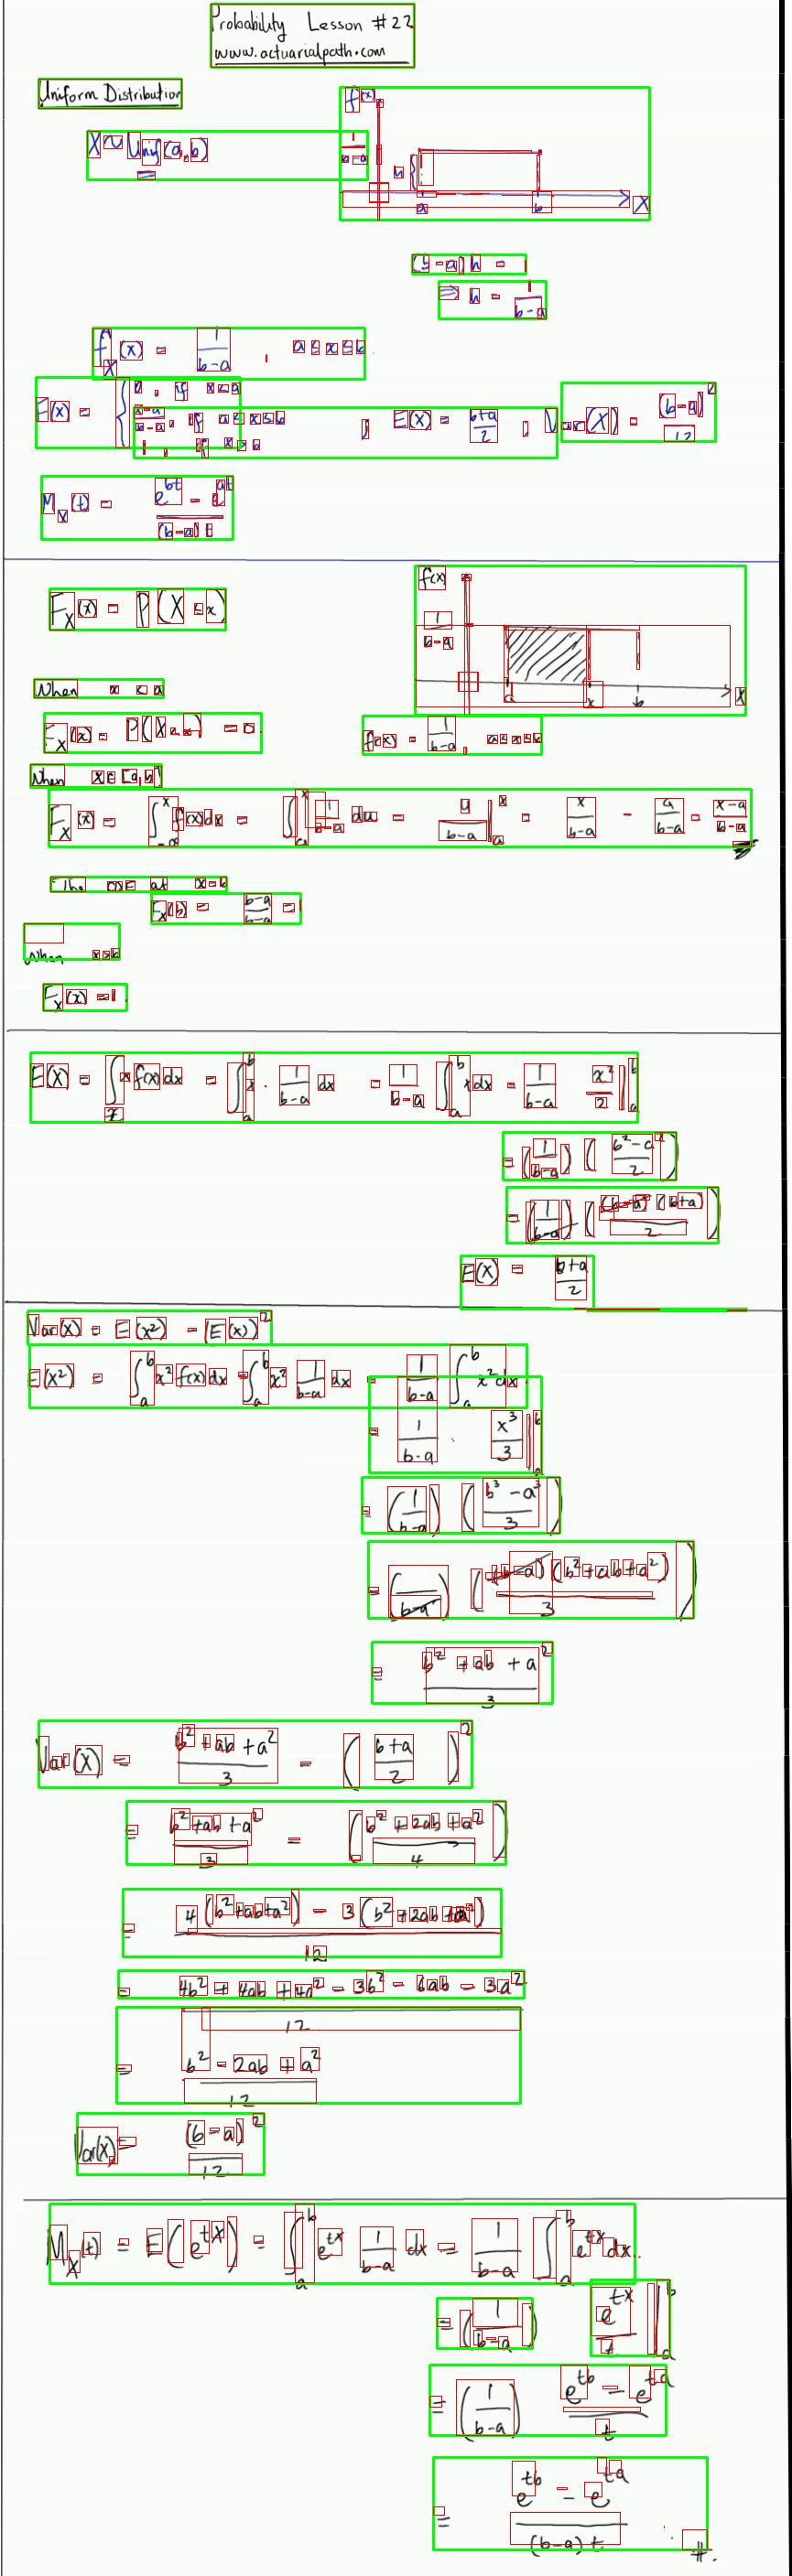 Probability Lesson #22
www.actuarialpath.com
Uniform Distribution
f(x)
X ~ Unif(a,b)
1/(b-a)
h {
a b X
(b-a)h = 1
⇒ h = 1/(b-a)
f_X(x) = 1/(b-a), a ≤ x ≤ b.
F(x) = { 0, if x<a
(x-a)/(b-a), if a≤x≤b
1, if x>b
; E(X) = (b+a)/2 , Var(X) = (b-a)^2/12
M_X(t) = (e^{bt} - e^{at})/((b-a)t)
f(x)
F_X(x) = P(X ≤ x)
1/(b-a)
a x b X
When x < a
F_X(x) = P(X≤x) = 0
f(x) = 1/(b-a), a≤x≤b
When x∈[a,b]
F_X(x) = ∫_{-∞}^x f(x)dx = ∫_a^x 1/(b-a) du = u/(b-a) |_a^x = x/(b-a) - a/(b-a) = (x-a)/(b-a)
at x=b
F_X(b) = (b-a)/(b-a) = 1
When x>b
F_X(x) = 1.
E(X) = ∫_x x f(x)dx = ∫_a^b x · 1/(b-a) dx = 1/(b-a) ∫_a^b x dx = 1/(b-a) x^2/2 |_a^b
= (1/(b-a)) ((b^2-a^2)/2)
= (1/(b-a)) ((b-a)(b+a)/2)
E(X) = (b+a)/2
Var(X) = E(X^2) - (E(X))^2
E(X^2) = ∫_a^b x^2 f(x)dx = ∫_a^b x^2 1/(b-a) dx = 1/(b-a) ∫_a^b x^2 dx
= 1/(b-a) · x^3/3 |_a^b
= (1/(b-a)) ((b^3-a^3)/3)
= (1/(b-a)) ((b-a)(b^2+ab+a^2)/3)
= (b^2+ab+a^2)/3
Var(X) = (b^2+ab+a^2)/3 - ((b+a)/2)^2
= (b^2+ab+a^2)/3 - ((b^2+2ab+a^2)/4)
= (4(b^2+ab+a^2) - 3(b^2+2ab+a^2))/12
= (4b^2+4ab+4a^2-3b^2-6ab-3a^2)/12
= (b^2-2ab+a^2)/12
Var(X) = (b-a)^2/12
M_X(t) = E(e^{tX}) = ∫_a^b e^{tx} 1/(b-a) dx = 1/(b-a) ∫_a^b e^{tx} dx.
= (1/(b-a)) e^{tx}/t |_a^b
= (1/(b-a)) (e^{tb} - e^{ta})/t
= (e^{tb} - e^{ta})/((b-a)t) . #.